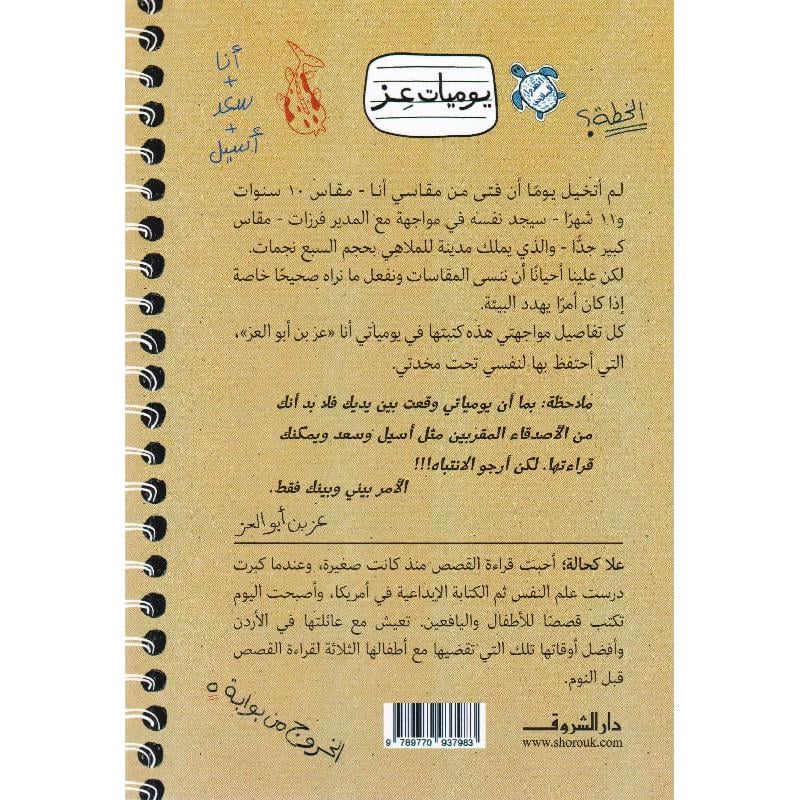 أنا
+
سعد
+
أسيل
يوميات عِز
أنقذوا
السلاحف
الخطة؟
لم أتخيل يومًا أن فتى من مقاسي أنا - مقاس ١٠ سنوات
و١١ شهرًا - سيجد نفسه في مواجهة مع المدير فرزات - مقاس
كبير جدًّا - والذي يملك مدينة للملاهي بحجم السبع نجمات.
لكن علينا أحيانًا أن ننسى المقاسات ونفعل ما نراه صحيحًا خاصة
إذا كان أمرًا يهدد البيئة.
كل تفاصيل مواجهتي هذه كتبتها في يومياتي أنا «عز بن أبو العز»،
التي أحتفظ بها لنفسي تحت مخدتي.
ملاحظة: بما أن يومياتي وقعت بين يديك فلا بد أنك
من الأصدقاء المقربين مثل أسيل وسعد ويمكنك
قراءتها. لكن أرجو الانتباه!!!
الأمر بيني وبينك فقط.
عز بن أبو العز
علا كحالة؛ أحبت قراءة القصص منذ كانت صغيرة، وعندما كبرت
درست علم النفس ثم الكتابة الإبداعية في أمريكا، وأصبحت اليوم
تكتب قصصًا للأطفال واليافعين. تعيش مع عائلتها في الأردن
وأفضل أوقاتها تلك التي تقضيها مع أطفالها الثلاثة لقراءة القصص
قبل النوم.
الخروج من بوابة ٥
9 789770 937983
دار الشروق
www.shorouk.com